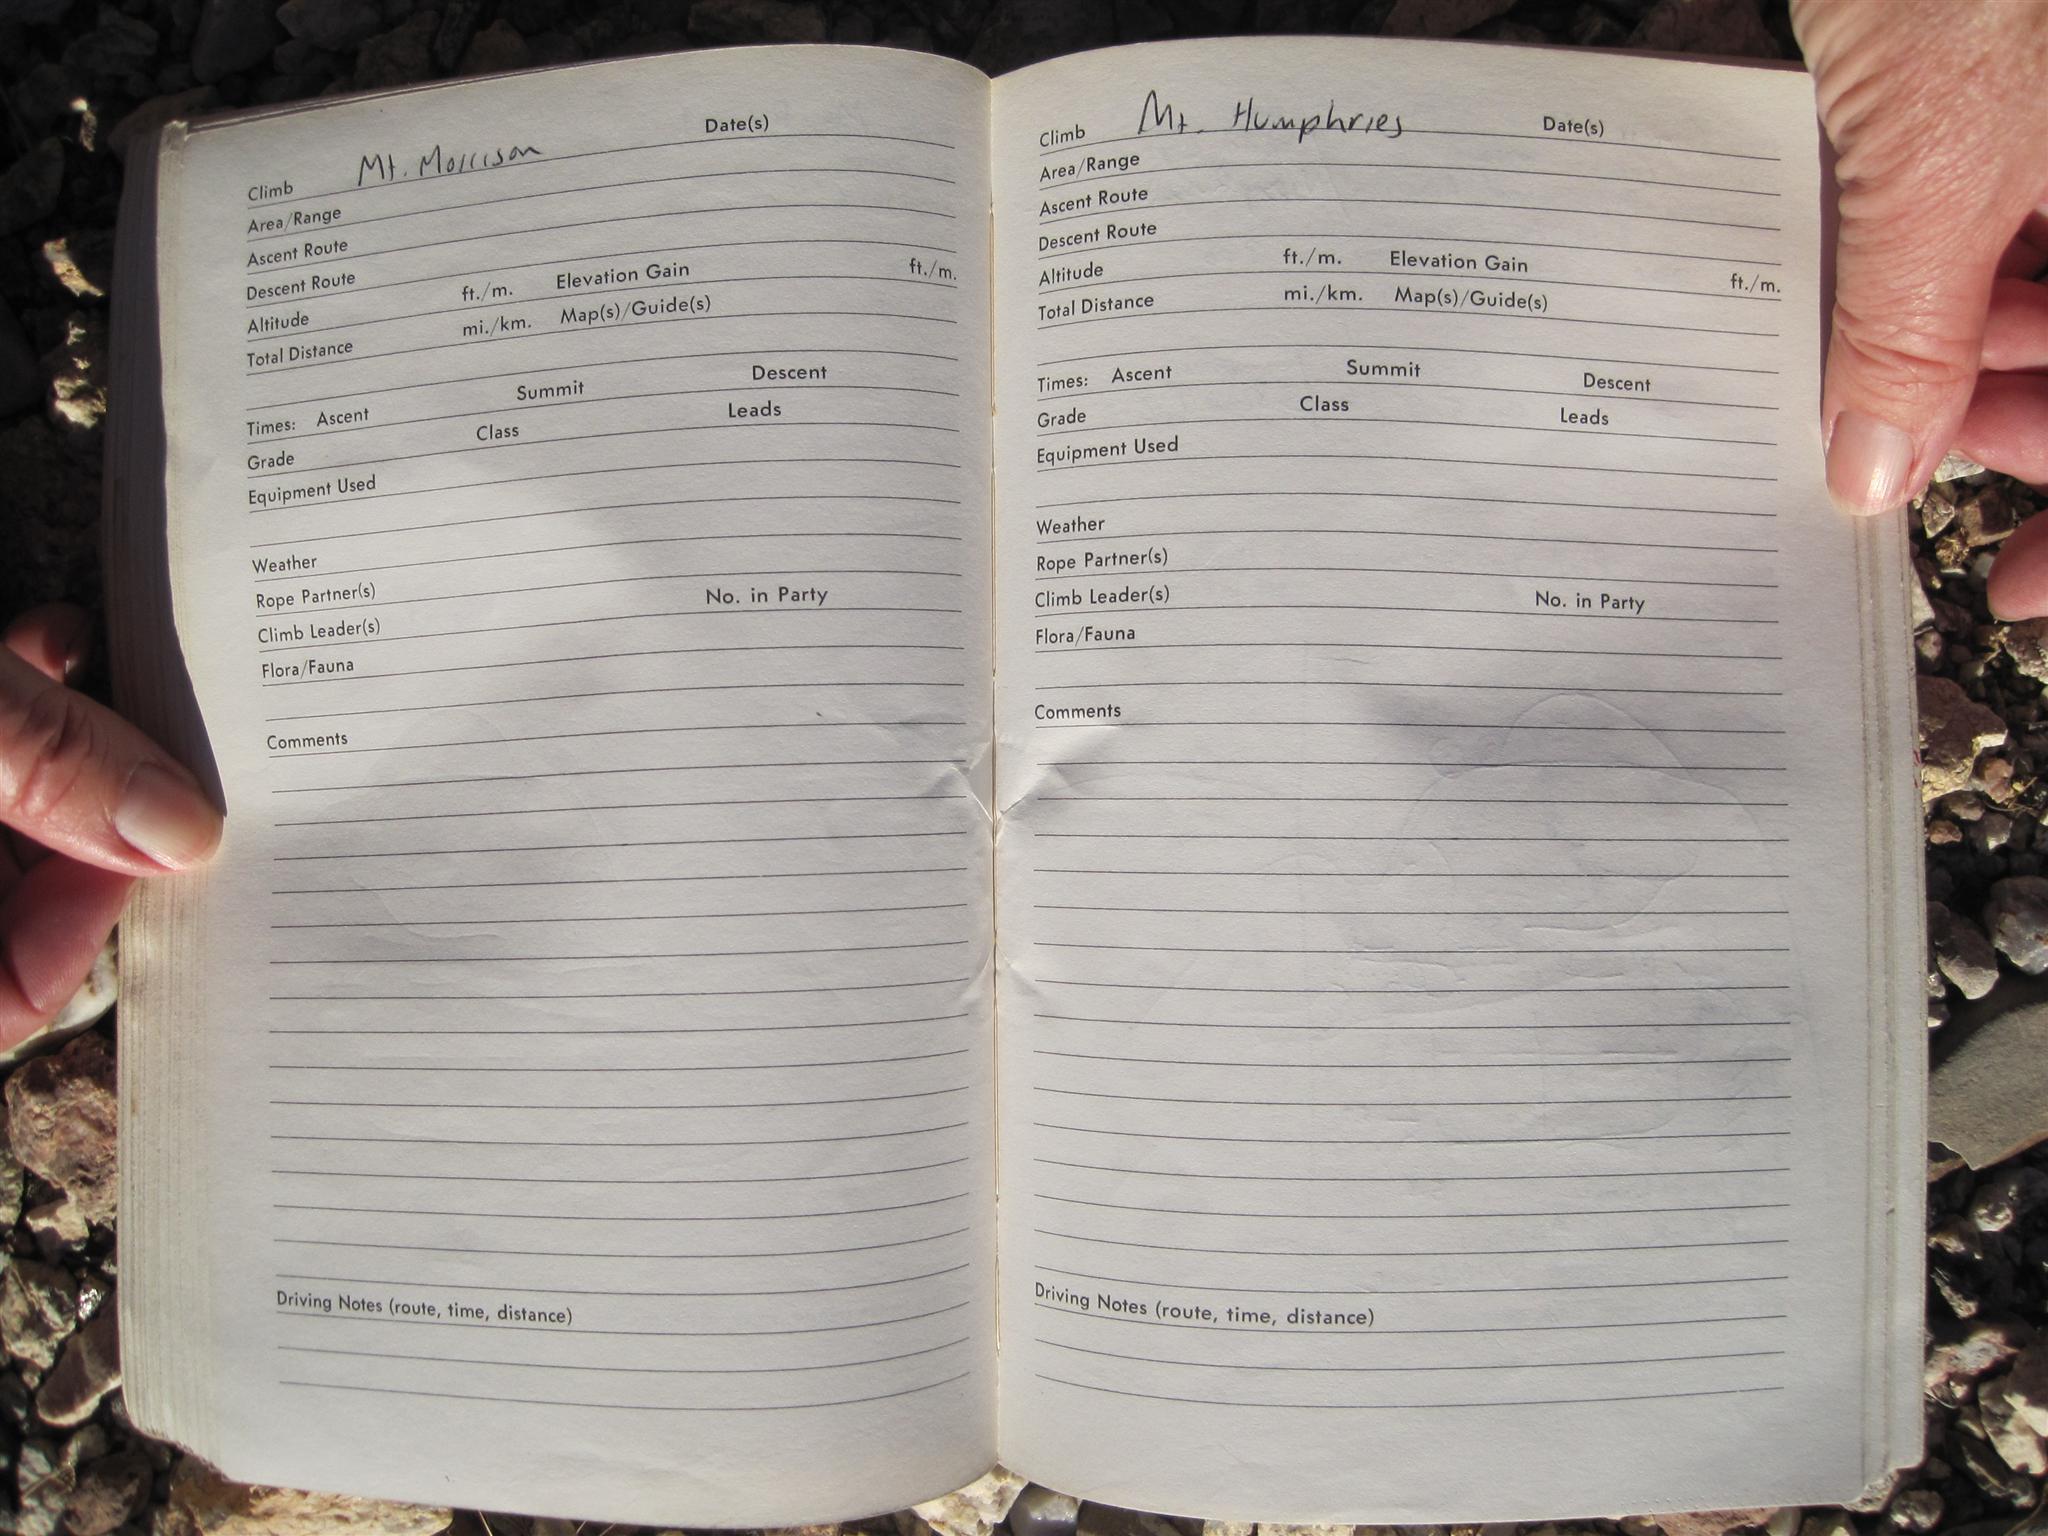 Date(s)
Climb Mt. Morrison
Area/Range
Ascent Route
Descent Route
Altitude ft./m. Elevation Gain ft./m.
Total Distance mi./km. Map(s)/Guide(s)
Times: Ascent Summit Descent
Grade Class Leads
Equipment Used
Weather
Rope Partner(s)
Climb Leader(s) No. in Party
Flora/Fauna
Comments
Driving Notes (route, time, distance)
Climb Mt. Humphries Date(s)
Area/Range
Ascent Route
Descent Route
Altitude ft./m. Elevation Gain ft./m.
Total Distance mi./km. Map(s)/Guide(s)
Times: Ascent Summit Descent
Grade Class Leads
Equipment Used
Weather
Rope Partner(s)
Climb Leader(s) No. in Party
Flora/Fauna
Comments
Driving Notes (route, time, distance)